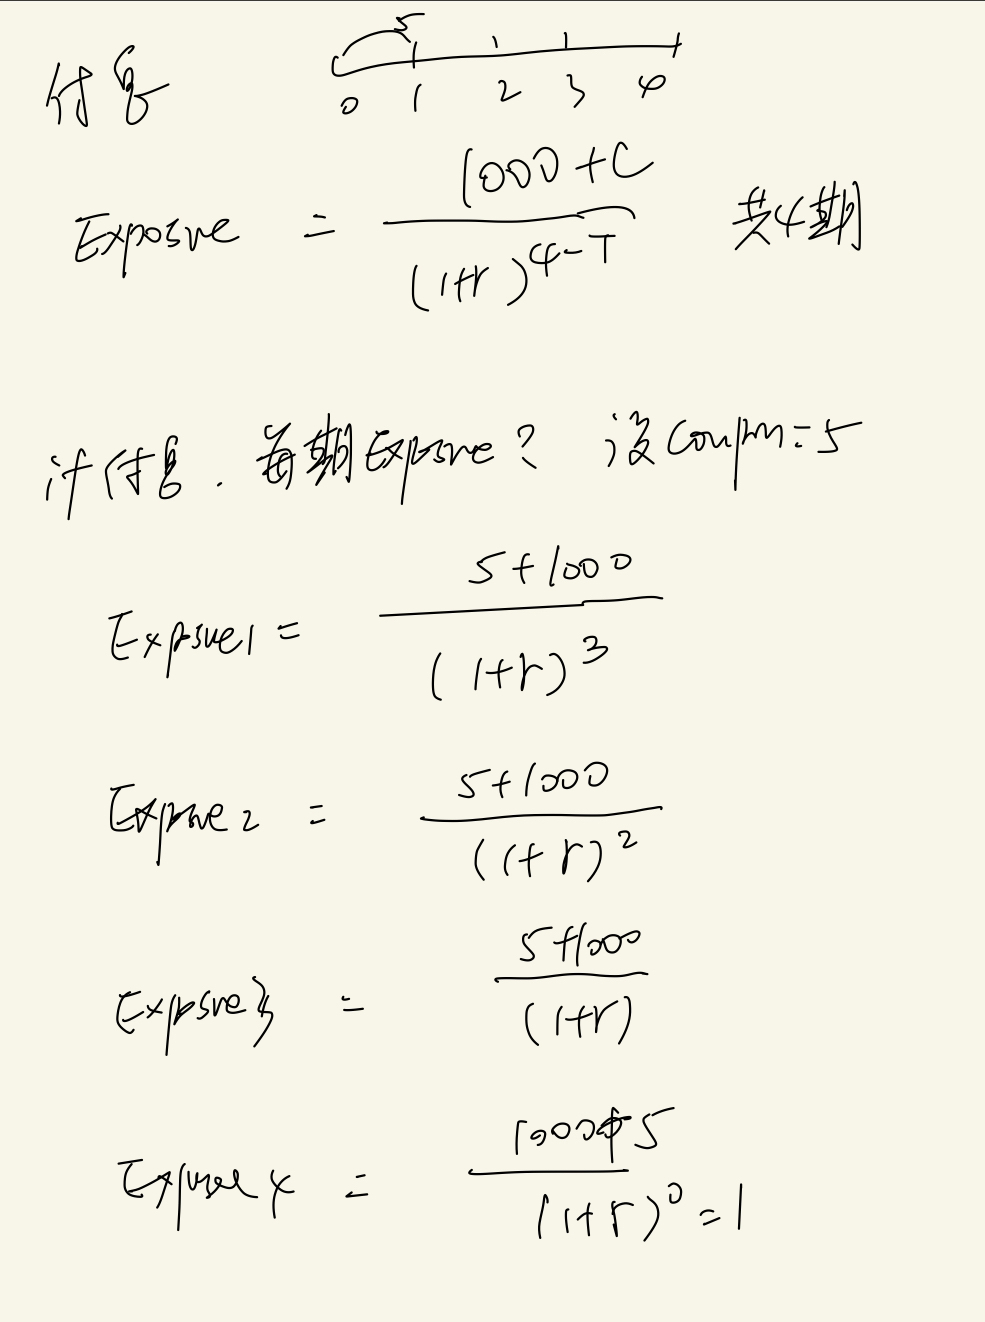 付息 5
0 1 2 3 4
Exposure = (1000+C)/(1+r)^(4-T) 共4期
计付息. 每期Exposure? 设coupon=5
Exposure1 = (5+1000)/(1+r)^3
Exposure2 = (5+1000)/(1+r)^2
Exposure3 = (5+1000)/(1+r)
Exposure4 = (1000+5)/(1+r)^0=1